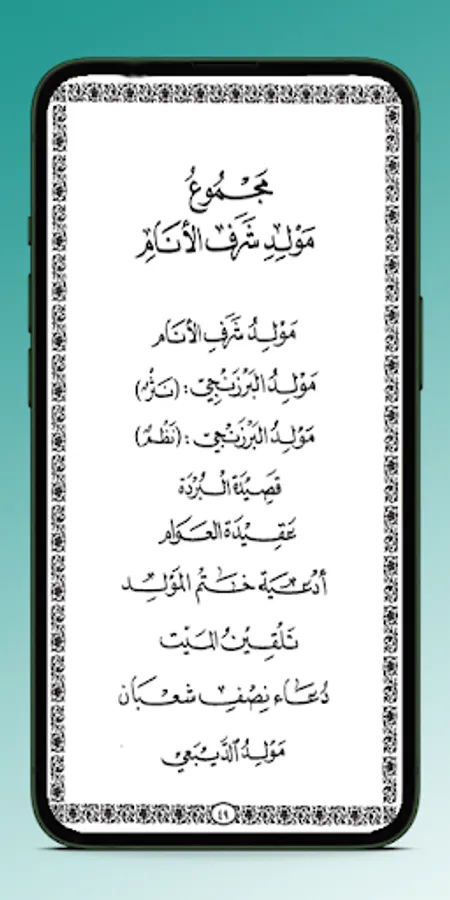 مَجْمُوعُ
مَوْلِدِ شَرَفِ الْأَنَامِ
مَوْلِدُ شَرَفِ الْأَنَامِ
مَوْلِدُ الْبَرْزَنْجِي : (نَثْرٌ)
مَوْلِدُ الْبَرْزَنْجِي : (نَظْمٌ)
قَصِيْدَةُ الْبُرْدَة
عَقِيْدَةُ الْعَوَام
أَدْعِيَة خَتْمُ الْمَوْلِد
تَلْقِيْنُ الْمَيِّت
دُعَاء نِصْفِ شَعْبَان
مَوْلِدُ الدَّيْبَعِي
٤٩